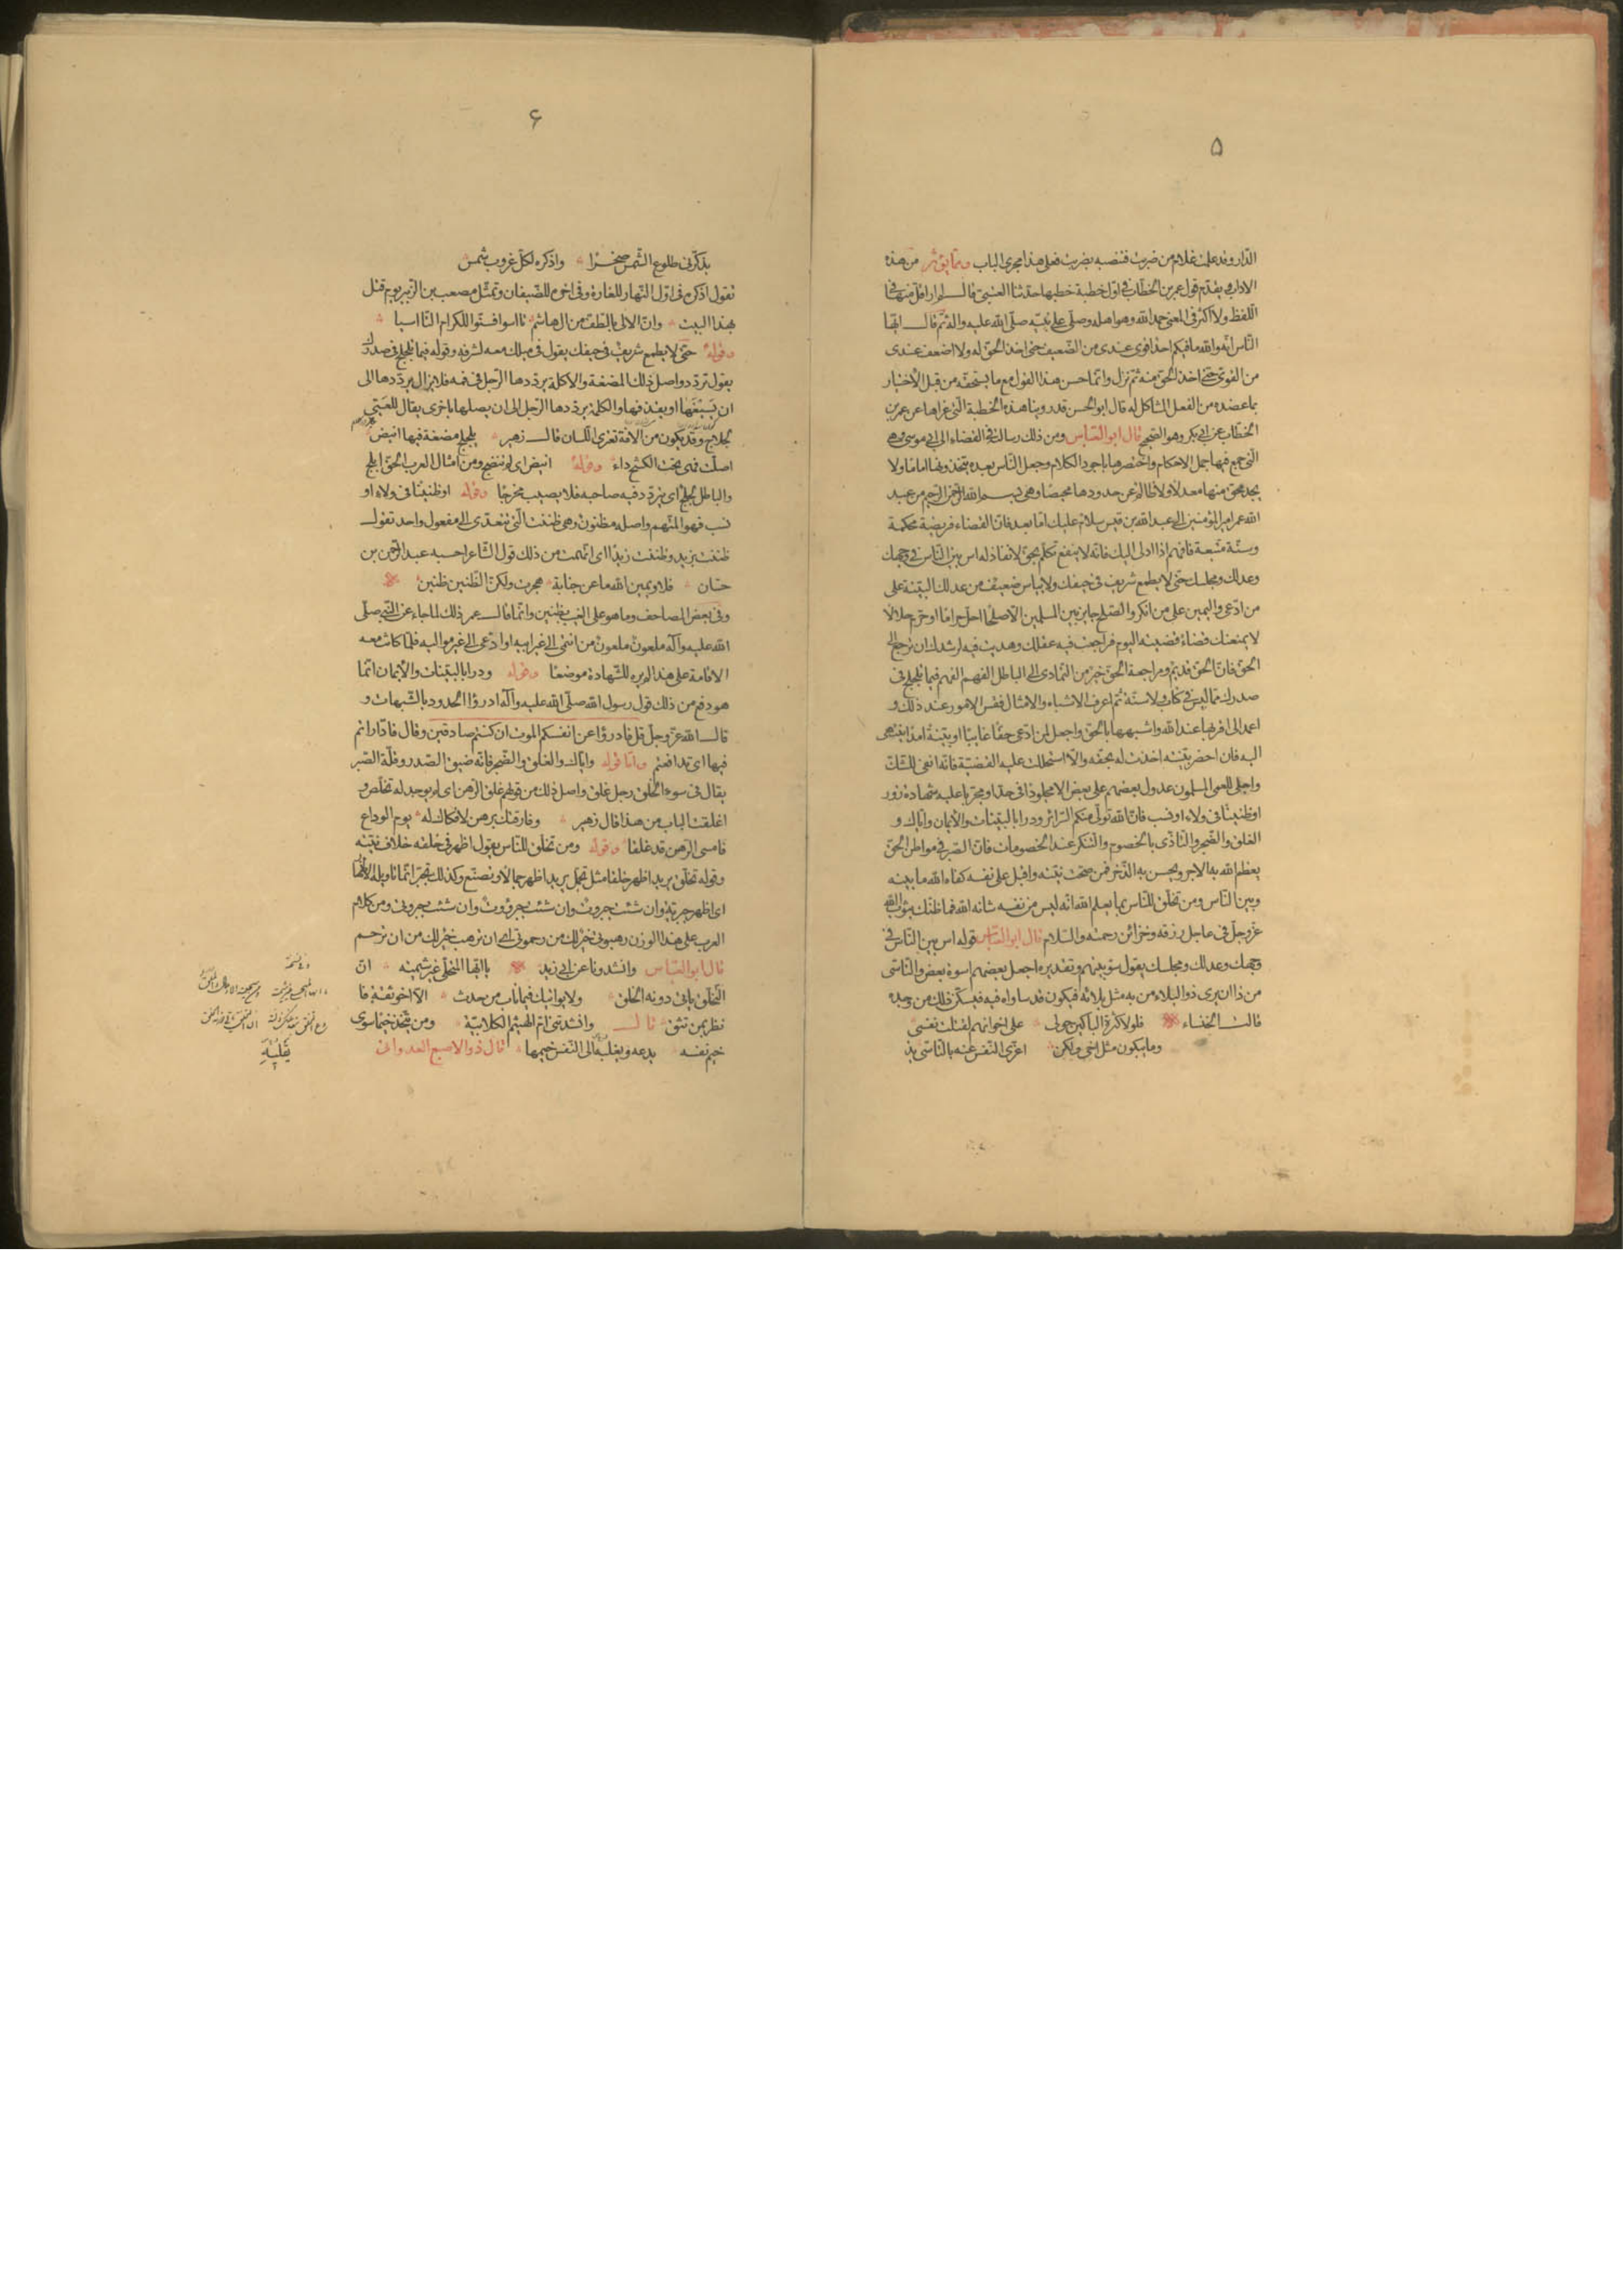 ۵
الدار وقد علمت غلام من ضربت فتنصبه بضربت فعلى هذا مجرى الباب ومما يؤثر من هذه
الاداب ويقدّم قول عمر بن الخطّاب فى اوّل خطبة خطبها حدثنا العتبى قال لم ار اقلّ منها فى
اللفظ ولا اكثر فى المعنى حمد الله وهو اهله وصلّى على نبيّه صلّى الله عليه واله ثمّ قال ايّها
النّاس انّه والله ما فيكم احد اقوى عندى من الضّعيف حتى اخذ الحقّ له ولا اضعف عندى
من القوىّ حتى اخذ الحقّ منه ثم نزل وانّما حسن هذا القول مع ما يستحقّه من قبل الاختيار
بما عضده من الفعل المشاكل له قال ابو الحسن قد روينا هذه الخطبة الّتى عزاها عن عمر بن
الخطّاب عن ابى بكر وهو الصّحيح قال ابو العبّاس ومن ذلك رسالته فى القضاء الى ابى موسى وهى
الّتى جمع فيها جمل الاحكام واختصرها باجود الكلام وجعل النّاس بعده يتّخذونها اماما ولا
يجد محقّ منها معدلا ولا ظالم عن حدودها محيصا وهى بسم الله الرّحمن الرّحيم من عبد
الله عمر امير المؤمنين الى عبد الله بن قيس سلام عليك امّا بعد فانّ القضاء فريضة محكمة
وسنّة متّبعة فافهم اذا ادلى اليك فانّه لا ينفع تكلّم بحقّ لا نفاذ له اس بين النّاس فى وجهك
وعدلك ومجلسك حتّى لا يطمع شريف فى حيفك ولا ييأس ضعيف من عدلك البيّنة على
من ادّعى واليمين على من انكر والصّلح جايز بين المسلمين الّا صلحا احلّ حراما او حرّم حلالا
لا يمنعنك قضاء قضيته اليوم فراجعت فيه عقلك وهديت فيه لرشدك ان ترجع الى
الحقّ فانّ الحقّ قديم ومراجعة الحقّ خير من التّمادى فى الباطل الفهم الفهم فيما تلجلج فى
صدرك ممّا ليس فى كتاب ولا سنّة ثمّ اعرف الاشباه والامثال فقس الامور عند ذلك و
اعمد الى اقربها عند الله واشبهها بالحقّ واجعل لمن ادّعى حقّا غايبا او بيّنة امدا ينتهى
اليه فان احضر بيّنته اخذت له بحقّه والّا استحللت عليه القضيّة فانّه انفى للشّكّ
واجلى للعمى المسلمون عدول بعضهم على بعض الا مجلودا فى حدّ او مجرّبا عليه شهادة زور
او ظنينا فى ولاء او نسب فانّ الله تولّى منكم السّرائر ودرأ بالبيّنات والايمان وايّاك و
الغلق والضّجر والتّاذّى بالخصوم والتّنكّر عند الخصومات فانّ الصّبر فى مواطن الحقّ
يعظم الله به الاجر ويحسن به الذّخر فمن صحّت نيّته واقبل على نفسه كفاه الله ما بينه
وبين النّاس ومن تخلّق للنّاس بما يعلم الله انّه ليس من نفسه شانه الله فما ظنّك بثواب الله
عزّ وجلّ فى عاجل رزقه وخزائن رحمته والسّلام قال ابو العبّاس قوله اس بين النّاس فى
وجهك وعدلك ومجلسك يقول سوّ بينهم وتقديره اجعل بعضهم اسوة بعض والتّاسّى
من ذا ان يرى ذو البلاء من به مثل بلائه فيكون قد ساواه فيه فيسكّن ذلك من وجده
قالت الخنساء فلولا كثرة الباكين حولى على اخوانهم لقتلت نفسى
وما يبكون مثل اخى ولكن اعزّى النّفس عنه بالتّاسّى يذ
۶
يذكّرنى طلوع الشّمس صخرا واذكره لكلّ غروب شمس
تقول اذكره فى اوّل النّهار للغارة وفى اخره للضّيفان وتمثّل مصعب بن الزّبير يوم قتل
بهذا البيت وانّ الالى بالطّفّ من ال هاشم تاسوا فسنّوا للكرام التّاسيا
وقوله حتّى لا يطمع شريف فى حيفك يقول فى ميلك معه لشرفه وقوله فيما تلجلج فى صدرك
يقول تردّد واصل ذلك المضغة والاكلة يردّدها الرّجل فى فمه فلا يزال يردّدها الى
ان يسيغها او يقذفها والكلمة يردّدها الرّجل الى ان يصلها باخرى يقال للعيىّ
لجلاج وقد يكون من الافة تعترى اللّسان قال زهير يلجلج مضغة فيها انيض
اصلّت فهى تحت الكشح داء وقوله انيض اى لم تنضج ومن امثال العرب الحقّ ابلج
والباطل لجلج اى يتردّد فيه صاحبه فلا يصيب مخرجا وقوله او ظنينا فى ولاء او
نسب فهو المتّهم واصله مظنون وهى ظننت الّتى تتعدّى الى مفعول واحد تقول
ظننت بزيد وظننت زيدا اى اتّهمت من ذلك قول الشّاعر احسبه عبد الرّحمن بن
حسّان فلا ويمين الله ما عن جناية هجرت ولكنّ الظّنين ظنين
وفى بعض المصاحف وما هو على الغيب بظنين وانّما قال عمر ذلك لما جاء عن النّبىّ صلّى
الله عليه وآله ملعون ملعون من انتمى الى غير ابيه او ادّعى الى غير مواليه فلمّا كانت معه
الاقامة على هذا لم يره للشّهادة موضعا وقوله ودرا بالبيّنات والايمان انّما
هو دفع من ذلك قول رسول الله صلّى الله عليه وآله ادرؤا الحدود بالشّبهات و
قال الله عزّ وجلّ قل فادرؤا عن انفسكم الموت ان كنتم صادقين وقال فادّاراتم
فيها اى تدافعتم وامّا قوله وايّاك والغلق والضّجر فانّه ضيق الصّدر وقلّة الصّبر
يقال فى سوء الخلق رجل غلق واصل ذلك من قولهم غلق الرّهن اى لم يوجد له تخلّص و
اغلقت الباب من هذا قال زهير وفارقتك برهن لا فكاك له يوم الوداع
فامسى الرّهن قد غلقا وقوله ومن تخلّق للنّاس يقول اظهر فى خلقه خلاف نيّته
وقوله تخلّق يريد اظهر خلقا مثل تجمّل يريد اظهر جمالا وتصنّع وكذلك تجبّر انّما تاويله
اى اظهر جبريّة وان شئت جبروّة وان شئت جبروت وان شئت جبروتى ومن كلام
العرب على هذا الوزن رهبوتى خير لك من رحموتى اى ان ترهب خير لك من ان ترحم
قال ابو العبّاس وانشدونا عن ابى زيد يا ايّها المتحلّى غير شيمته انّ
التّخلّق ياتى دونه الخلق ولا يواتيك فيما ناب من حدث الّا اخو ثقة فا
نظر بمن تثق قال وانشدتنى امّ الهيثم الكلابيّة ومن يتّخذ خيما سوى
خيم نفسه يدعه ويغلبه الى النّفس خيمها قال ذو الاصبع العدوانى